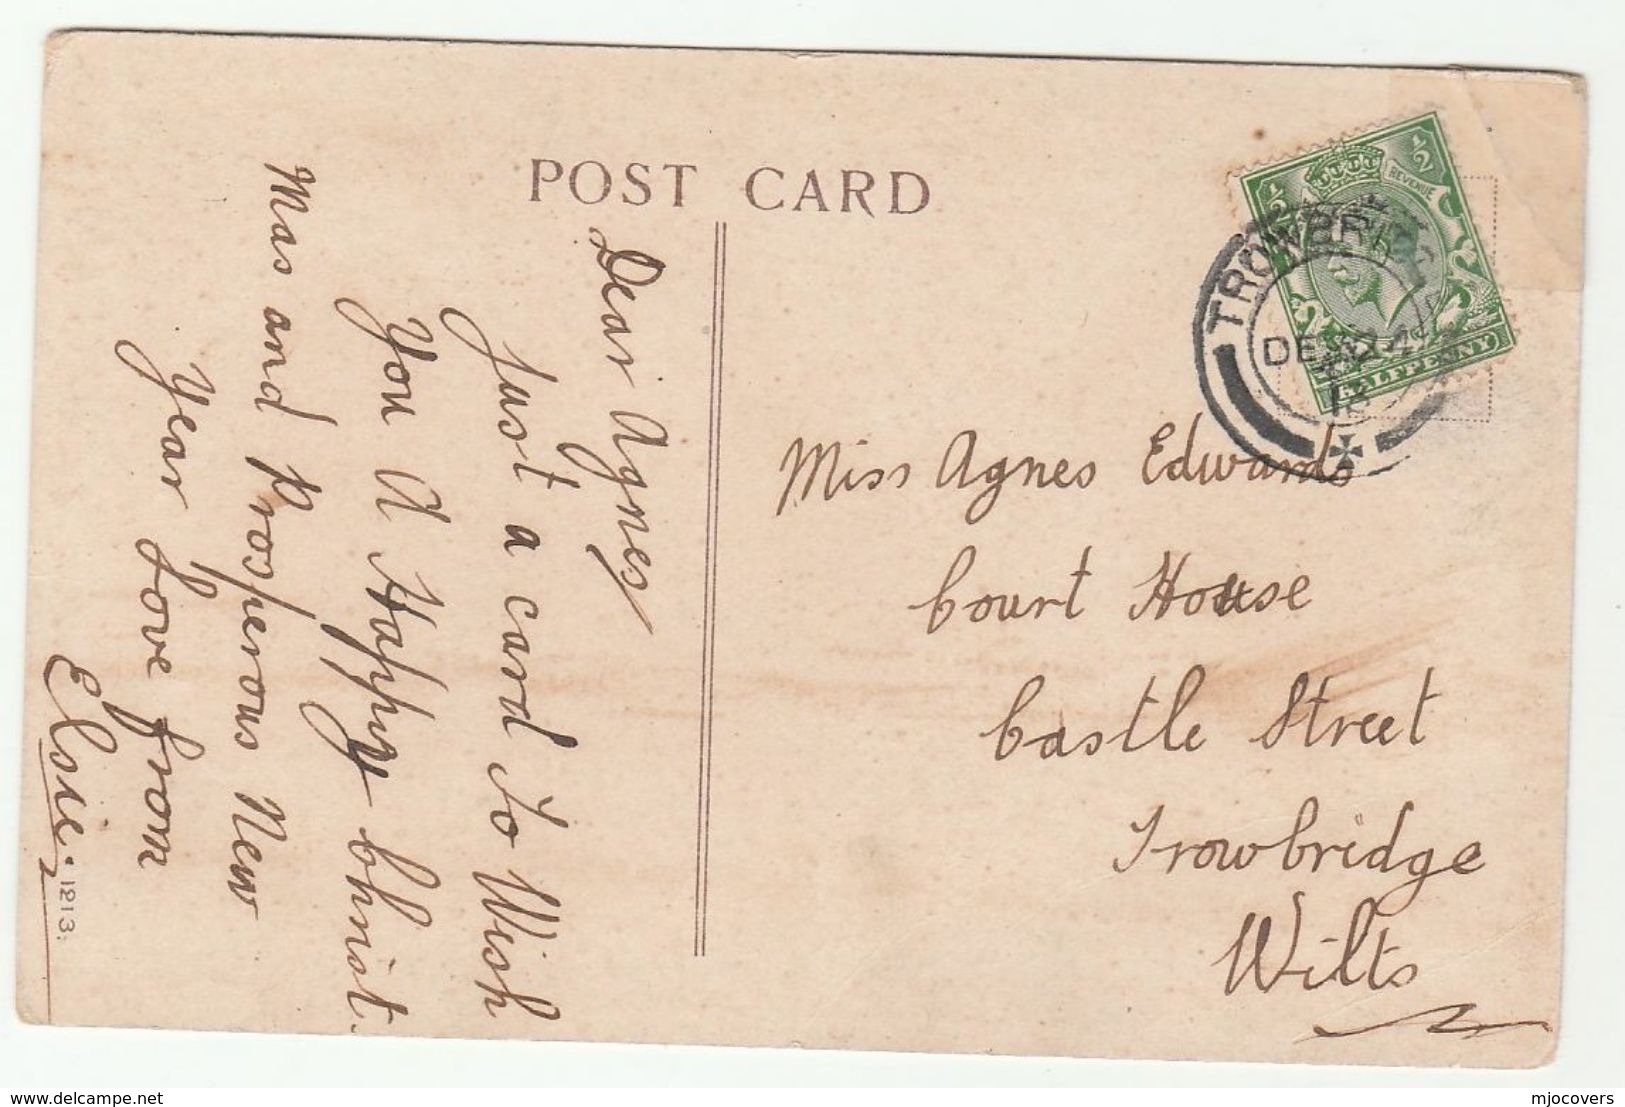 POST CARD
Dear Agnes
Just a card to Wish
You A Happy Christ
Mas and Prosperous New
Year Love from
Elsie.
1213.
½ ½
REVENUE
HALFPENNY
TROWBRIDGE
DE 24
Miss Agnes Edwards
Court House
Castle Street
Trowbridge
Wilts
delcampe.net
mjocovers